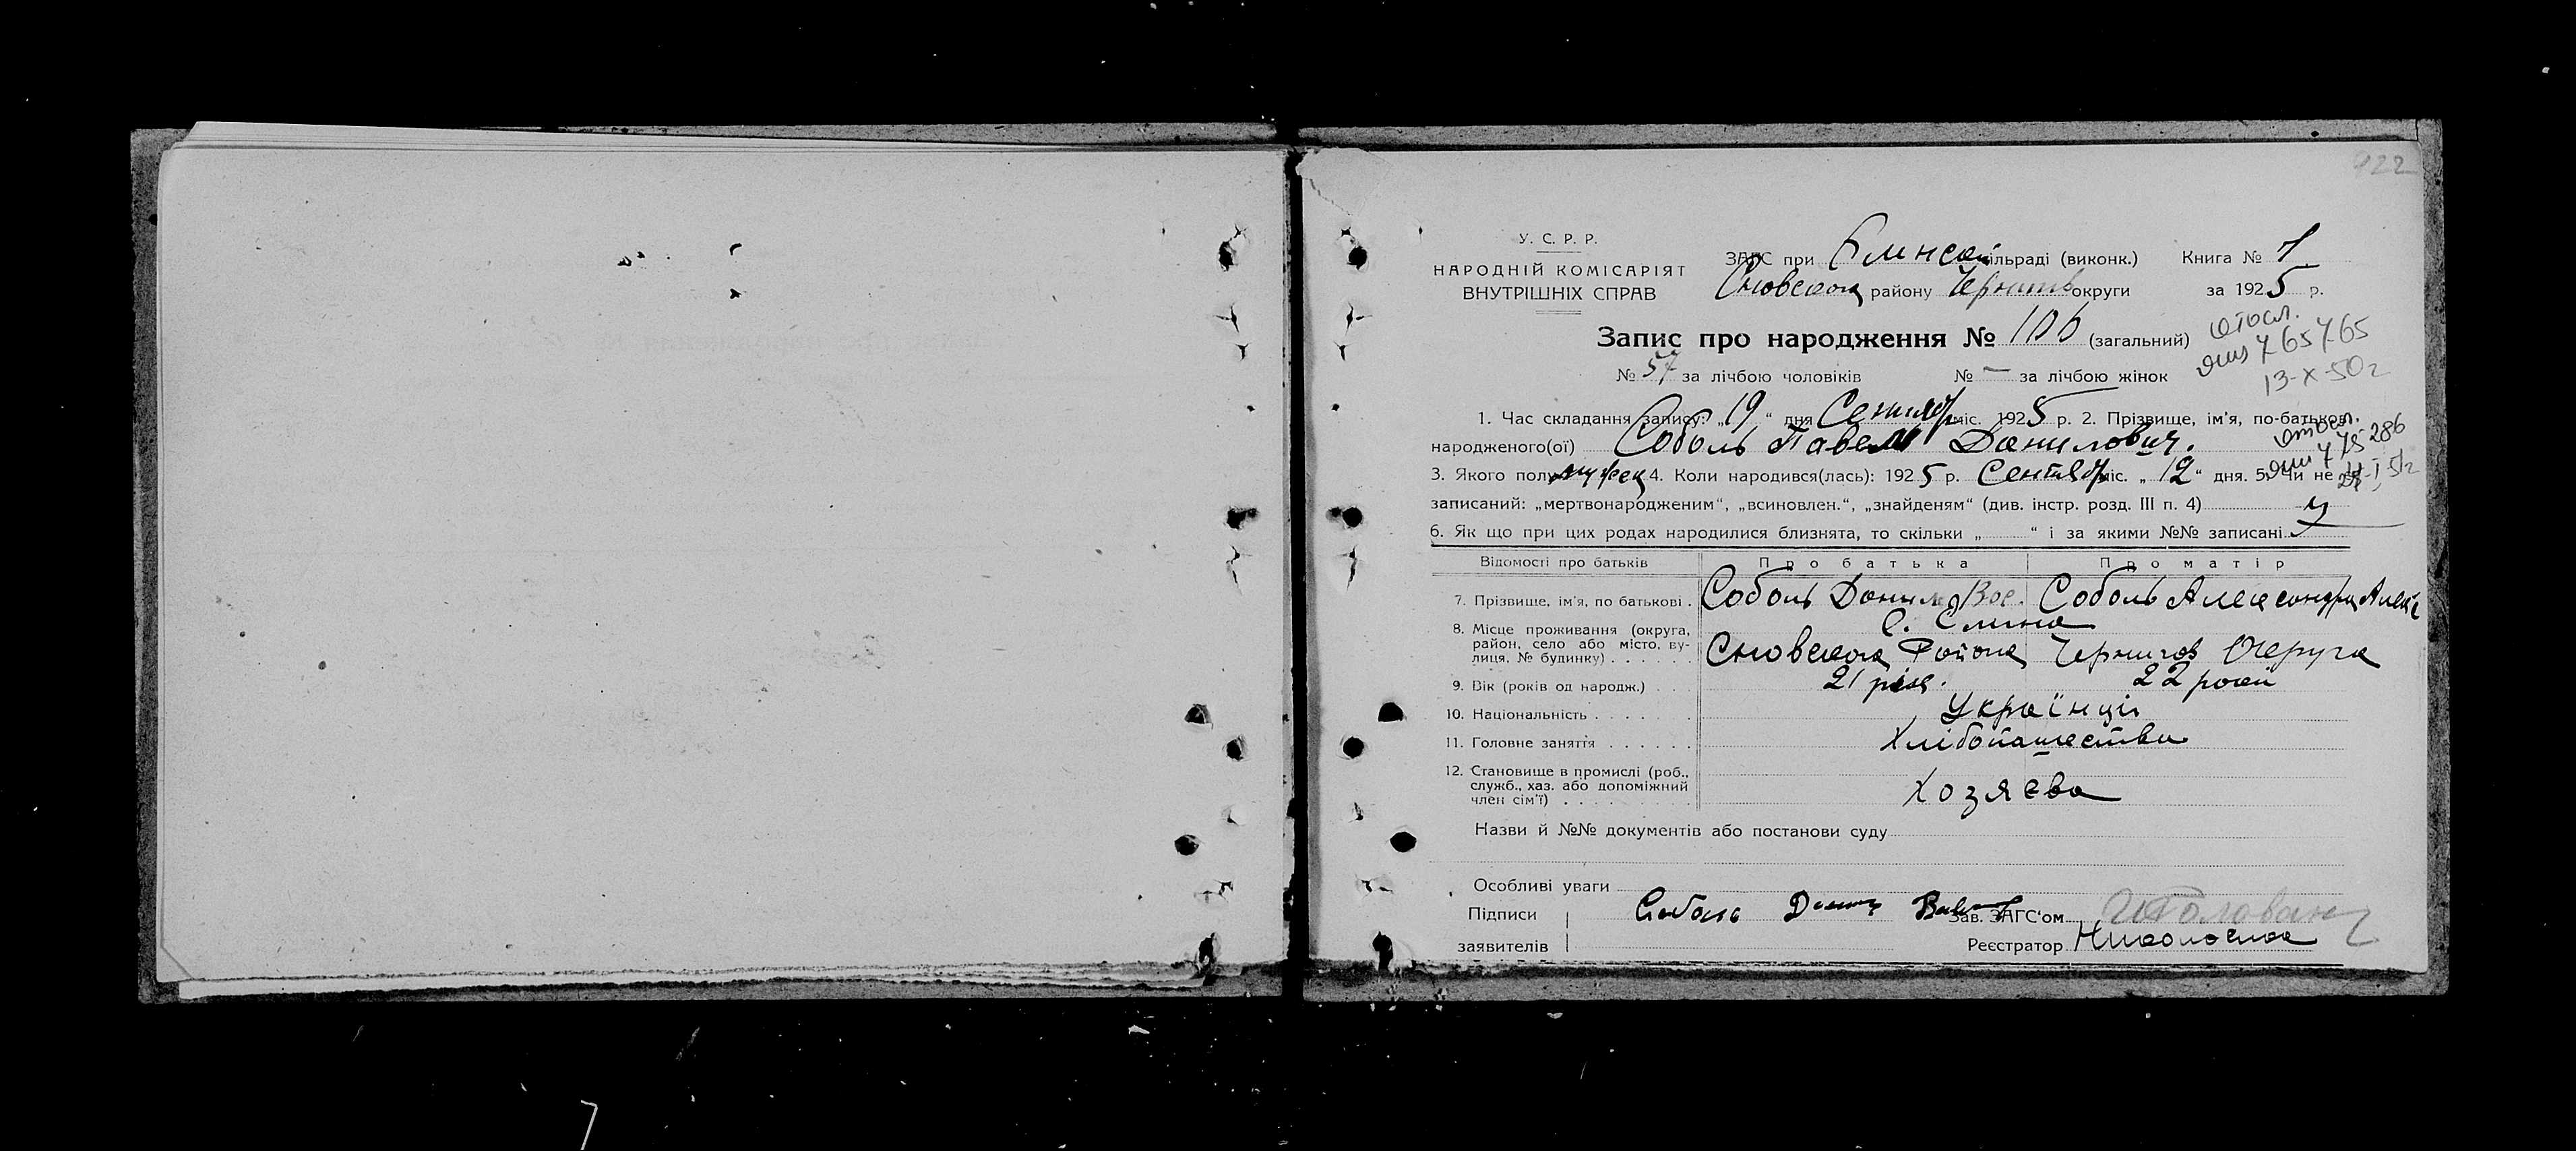 922
У. С. Р. Р.
НАРОДНІЙ КОМІСАРІЯТ
ВНУТРІШНІХ СПРАВ
ЗАГС при сільраді (виконк.) Книга № 1
Сновского району Черниговокруги за 1925 р.
Запис про народження № 106 (загальний)
отосл.
765765
13-X-50г
№ 57 за лічбою чоловіків № — за лічбою жінок
1. Час складання запису: „19“ дня Сентябр міс. 1925 р. 2. Прізвище, ім'я, по-батькові
народженого(ої) Соболь Павел Данилович.
отосл.
775286
3. Якого полу мужск 4. Коли народився(лась): 1925 р. Сентябр міс. „12“ дня. 5. Чи не
записаний: „мертвонародженим“, „всиновлен.“, „знайденям“ (див. інстр. розд. III п. 4)
6. Як що при цих родах народилися близнята, то скільки „ “ і за якими №№ записані
Відомості про батьків Про батька Про матір
7. Прізвище, ім'я, по батькові . Соболь Данило Вас. Соболь Александра Алекс
8. Місце проживання (округа, район, село або місто, вулиця, № будинку) . . . . . . с. Елина
Сновского Района Чернигов Округа
9. Вік (років од народж.) . . . 21 рік. 22 роки
10. Національність . . . . . . Українці
11. Головне заняття . . . . . . Хлібопашество
12. Становище в промислі (роб., служб., хаз. або допоміжний член сім'ї) . . . . . . Хозяєва
Назви й №№ документів або постанови суду
Особливі уваги
Підписи Соболь Зав. ЗАГС'ом
заявителів Реєстратор